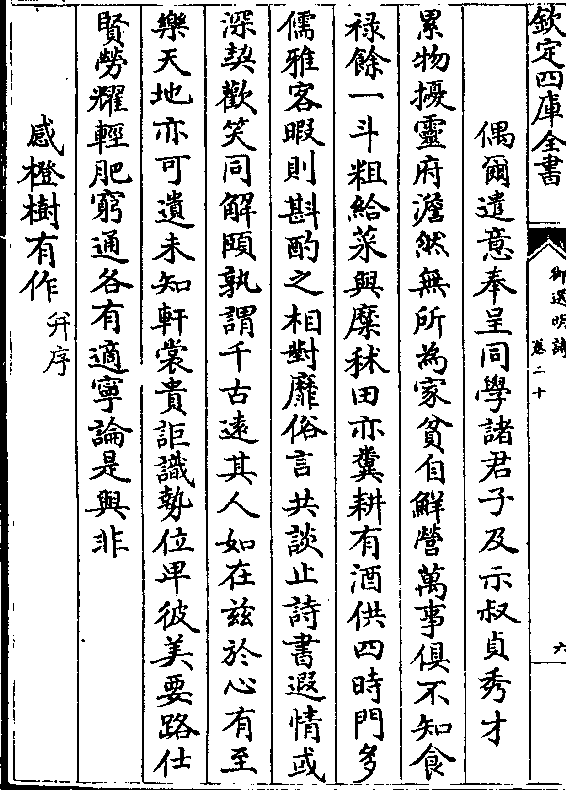 欽定四庫全書
御選明詩
卷二十
六
偶爾遣意奉呈同學諸君子及示叔貞秀才
累物擾靈府澹然無所為家貧自鮮營萬事俱不知食
祿餘一斗粗給菜與糜秫田亦糞耕有酒供四時門多
儒雅客暇則斟酌之相對靡俗言共談止詩書遐情或
深契歡笑同解頤孰謂千古遠其人如在兹於心有至
樂天地亦可遺未知軒裳貴詎識勢位卑彼美要路仕
賢勞耀輕肥窮通各有適寧論是與非
感橙樹有作并序